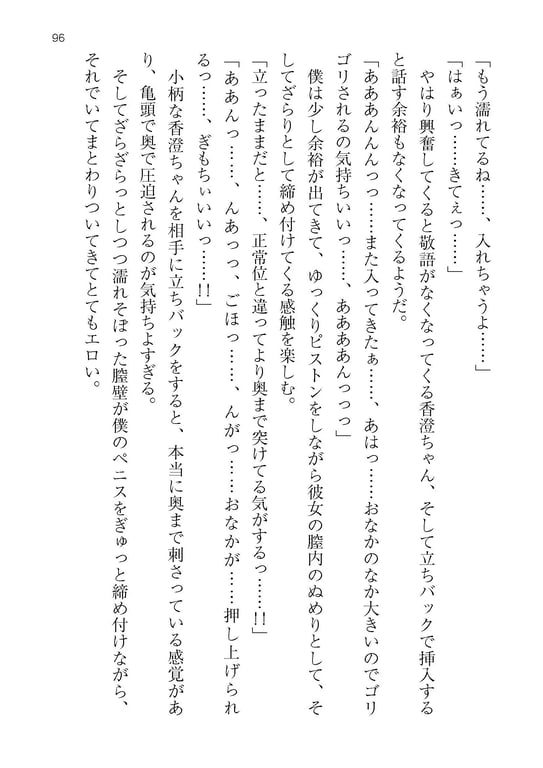 96
「もう濡れてるね……、入れちゃうよ……」
「はぁいっ……きてぇっ……」
やはり興奮してくると敬語がなくなってくる香澄ちゃん、そして立ちバックで挿入する
と話す余裕もなくなってくるようだ。
「あああんんんっっ……また入ってきたぁ……、あはっ……おなかのなか大きいのでゴリ
ゴリされるの気持ちいいっ……、ああああんっっっ」
僕は少し余裕が出てきて、ゆっくりピストンをしながら彼女の膣内のぬめりとして、そ
してざらりとして締め付けてくる感触を楽しむ。
「立ったままだと……、正常位と違ってより奥まで突けてる気がするっ……!!」
「ああんっ……、んあっっ、ごほっ……、んがっ……おなかが……押し上げられ
るっ……、ぎもちぃいいっ……!!」
小柄な香澄ちゃんを相手に立ちバックをすると、本当に奥まで刺さっている感覚があ
り、亀頭で奥で圧迫されるのが気持ちよすぎる。
そしてざらざらっとしつつ濡れそぼった膣壁が僕のペニスをぎゅっと締め付けながら、
それでいてまとわりついてきてとてもエロい。